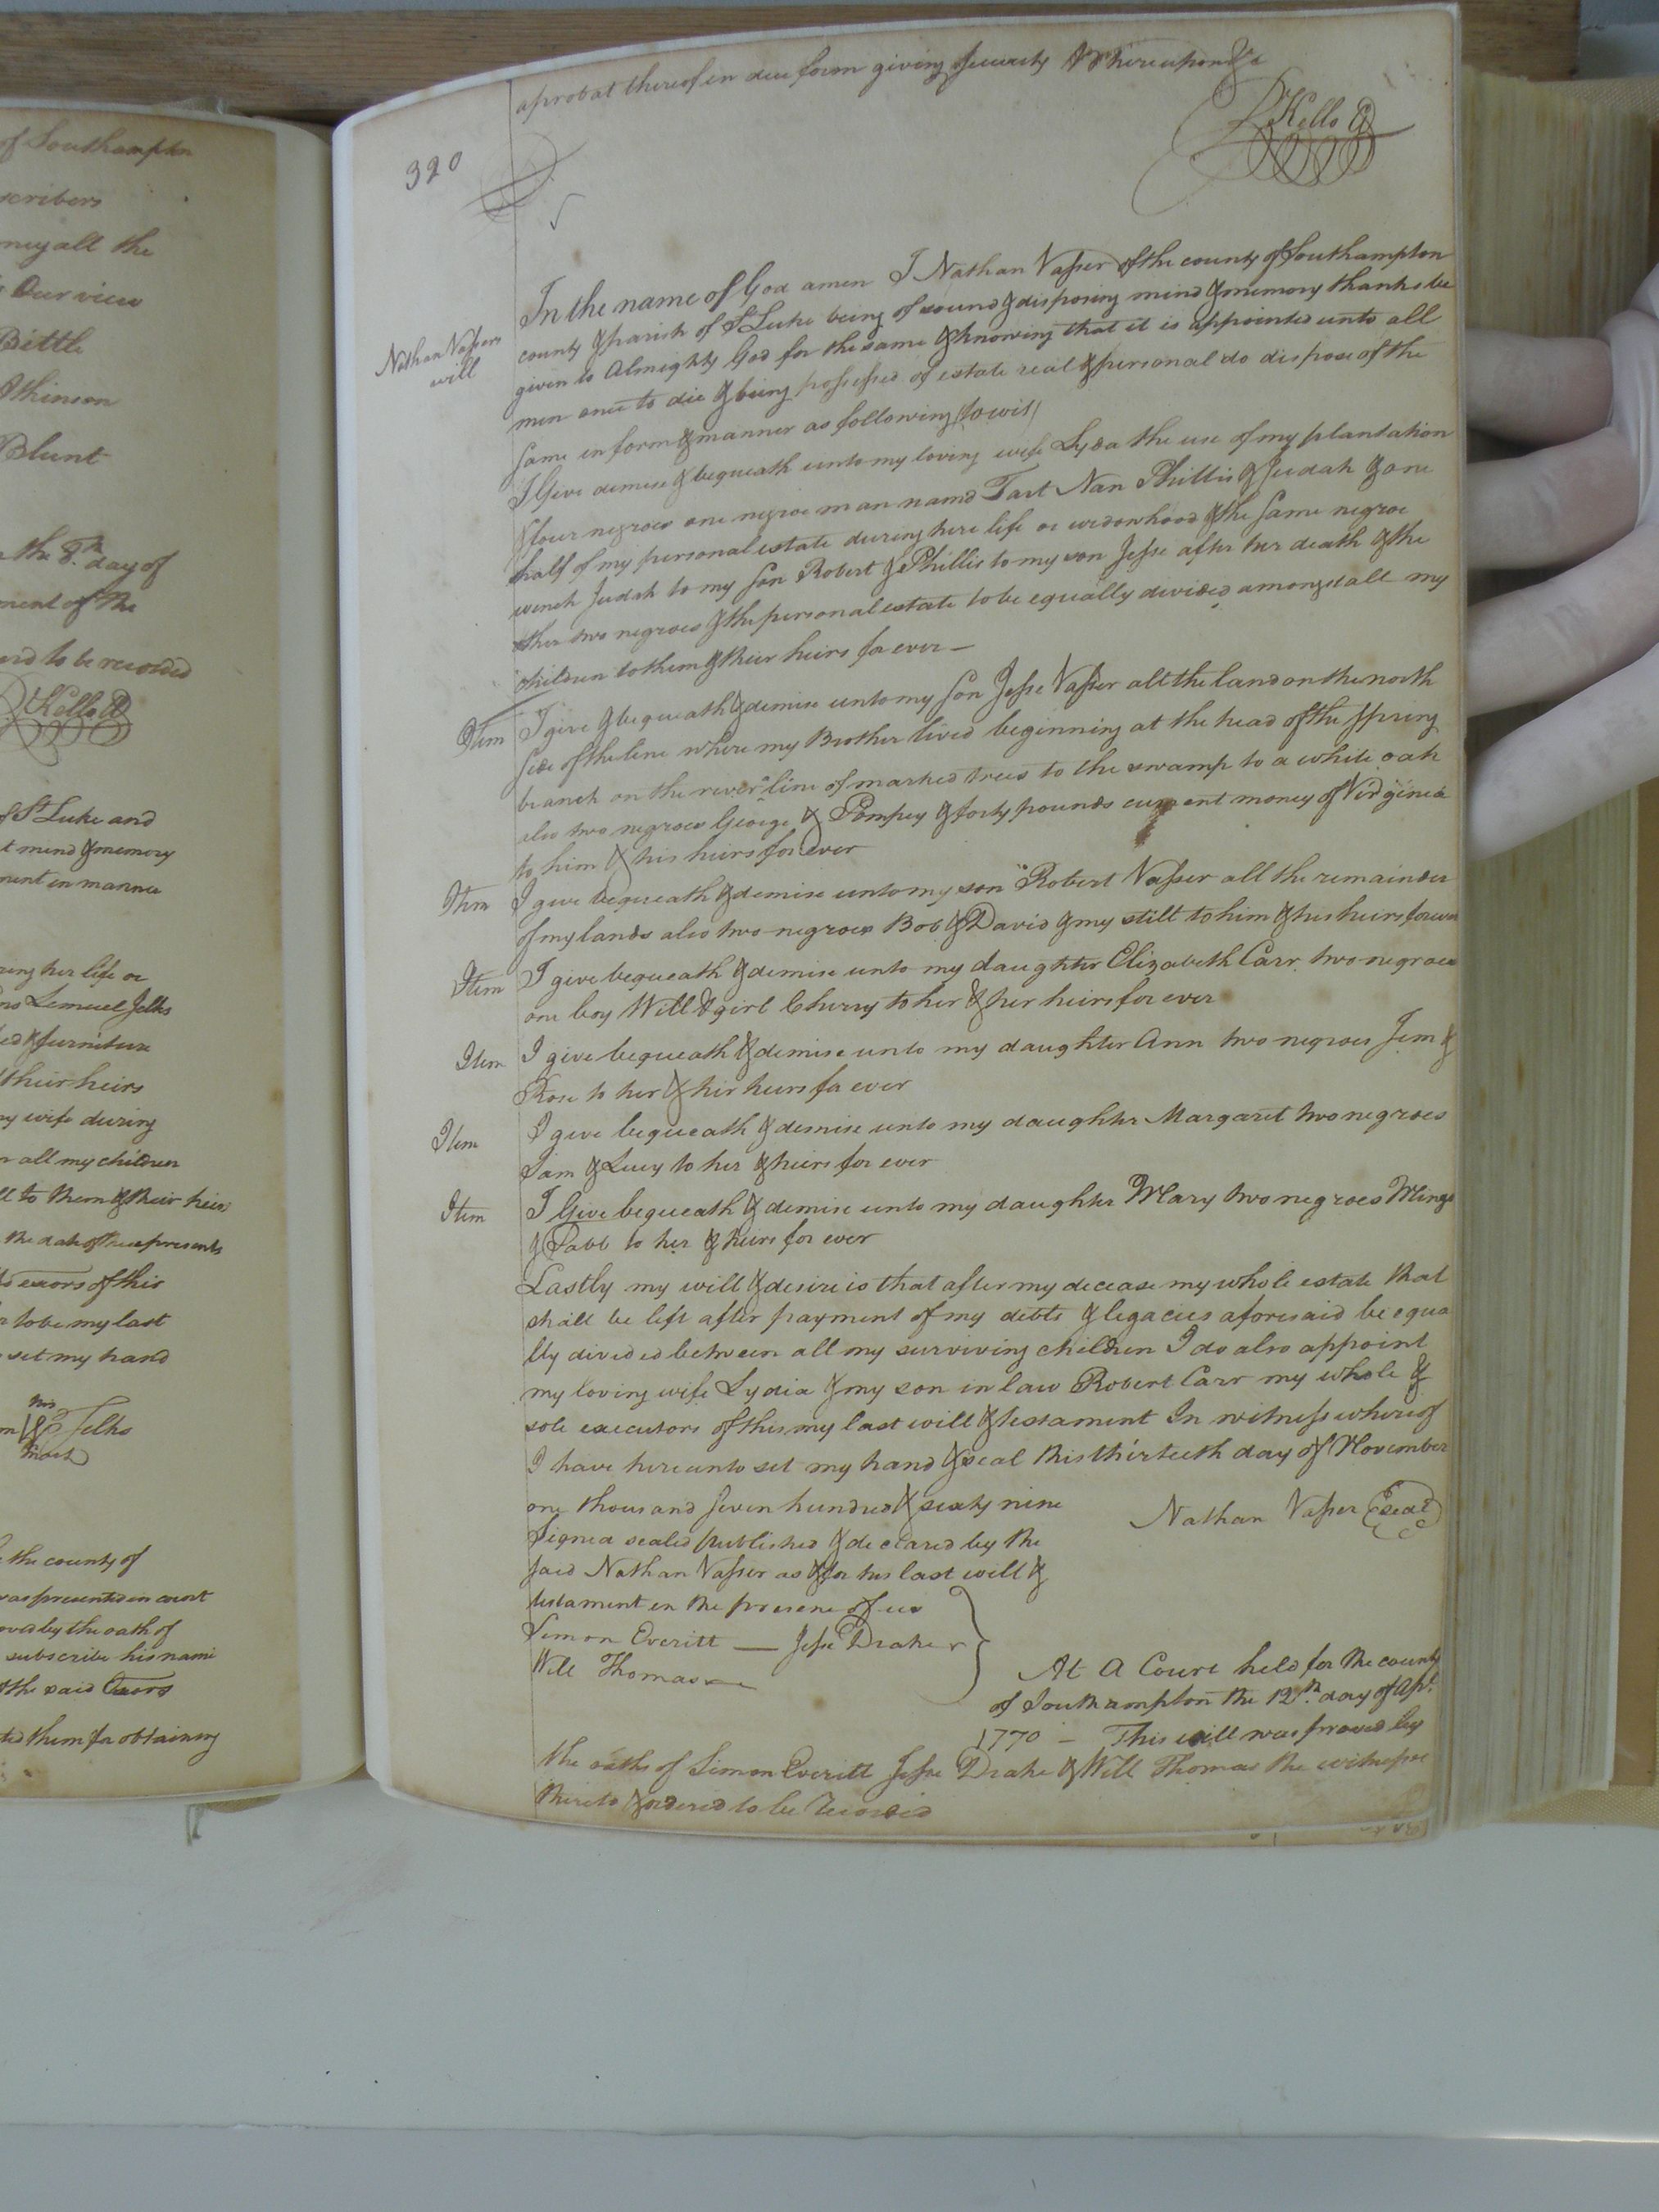 of Southampton
scribers
ney all the
Our view
Bittle
Atkinson
Blunt
the 8.th day of
ment of the
erd to be recorded
Kello C
of St Luke and
t mind & memory
ment in manner
ring her life or
Lemuel Jelks
ed & furniture
their heirs
my wife during
all my children
ll to them & their heirs
the date of these presents
exors of this
to be my last
set my hand
his
Jelks
mark
the county of
was presented in court
oved by the oath of
subscribe his name
the said Exors
ted them for obtaining
aprobat thereof in due form giving security Whereupon &c
Kello C
320
Nathan Vassers
will
In the name of God amen I Nathan Vasser of the county of Southampton
county & parish of St Luke being of sound & disposing mind & memory thanks be
given to Almighty God for the same & knowing that it is appointed unto all
men once to die & being possessed of estate real & personal do dispose of the
same in form & manner as following (to wit)
I Give demise & bequeath unto my loving wife Lydia the use of my plantation
& four negroes one negroe man namd Tart Nan Phillis & Judah & one
half of my personal estate during here life or widowhood & the same negroe
wench Judah to my son Robert & Phillis to my son Jesse after her death & the
other two negroes & the personal estate to be equally divided amongst all my
children to them & their heirs for ever —
Item I give & bequeath & demise unto my son Jesse Vasser all the land on the north
side of the line where my Brother lived beginning at the head of the spring
branch on the river line of marked trees to the swamp to a white oak
also two negroes George & Pompey & forty pounds current money of Virginia
to him & his heirs for ever
Item I give bequeath & demise unto my son Robert Vasser all the remainder
of my lands also two negroes Bob & David & my still to him & his heirs forever
Item I give bequeath & demise unto my daughter Elizabeth Carr two negroes
one boy Will & girl Cherry to her & her heirs for ever
Item I give bequeath & demise unto my daughter Ann two negroes Jem &
Rose to her & hir heirs for ever
Item I give bequeath & demise unto my daughter Margaret two negroes
Sam & Lucy to her & heirs for ever
Item I Give bequeath & demise unto my daughter Mary two negroes Mingo
& Pabb to her & heirs for ever
Lastly my will & desire is that after my decease my whole estate that
shall be left after payment of my debts & legacies aforesaid be equa
lly divided between all my surviving children I do also appoint
my loving wife Lydia & my son in law Robert Carr my whole &
sole executors of this my last will & testament In witness whereof
I have hereunto set my hand & seal this thirteeth day of November
one thousand seven hundred & sixty nine
Nathan Vasser seal
Signed sealed published & declared by the
said Nathan Vasser as & for his last will &
testament in the presene of us
Simon Everitt — Jesse Drake
Will Thomas
At A Court held for the county
of Southampton the 12.th day of Apl.
1770 — This will was proved by
the oaths of Simon Everitt Jesse Drake & Will Thomas the witnesses
thereto & ordered to be Recorded